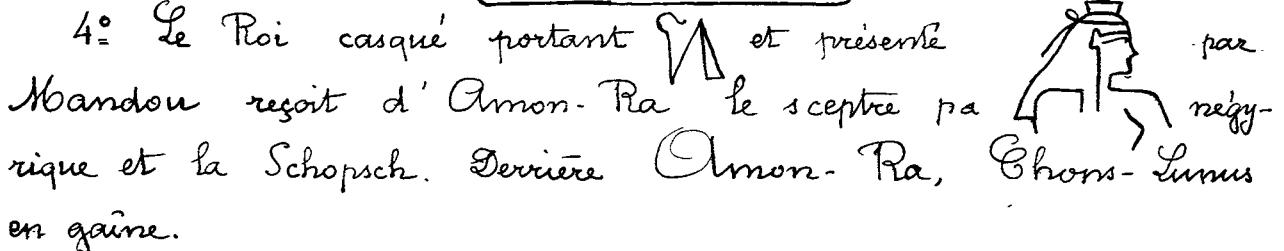 4º Le Roi casqué portant et présenté par
Mandou reçoit d'Amon-Ra le sceptre pa négy-
rique et la Schopsch. Derrière Amon-Ra, Chons-Lunus
en gaîne.